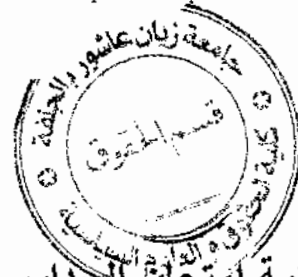 جامعة زيان عاشور بالجلفة
كلية الحقوق و العلوم السياسية
قسم الحقوق